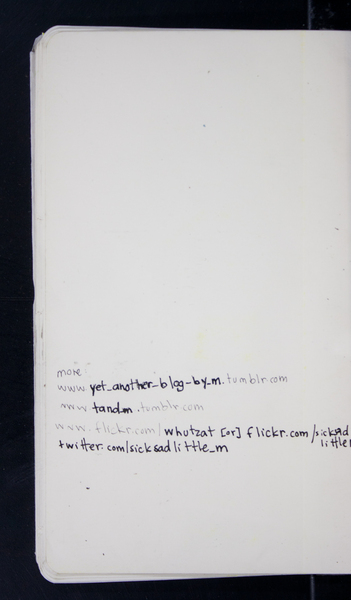 more
www.yet_another_blog-by_m.tumblr.com
www.tandm.tumblr.com
www.flickr.com/whutzat [or] flickr.com/sicksad
little
twitter.com/sicksadlittle_m